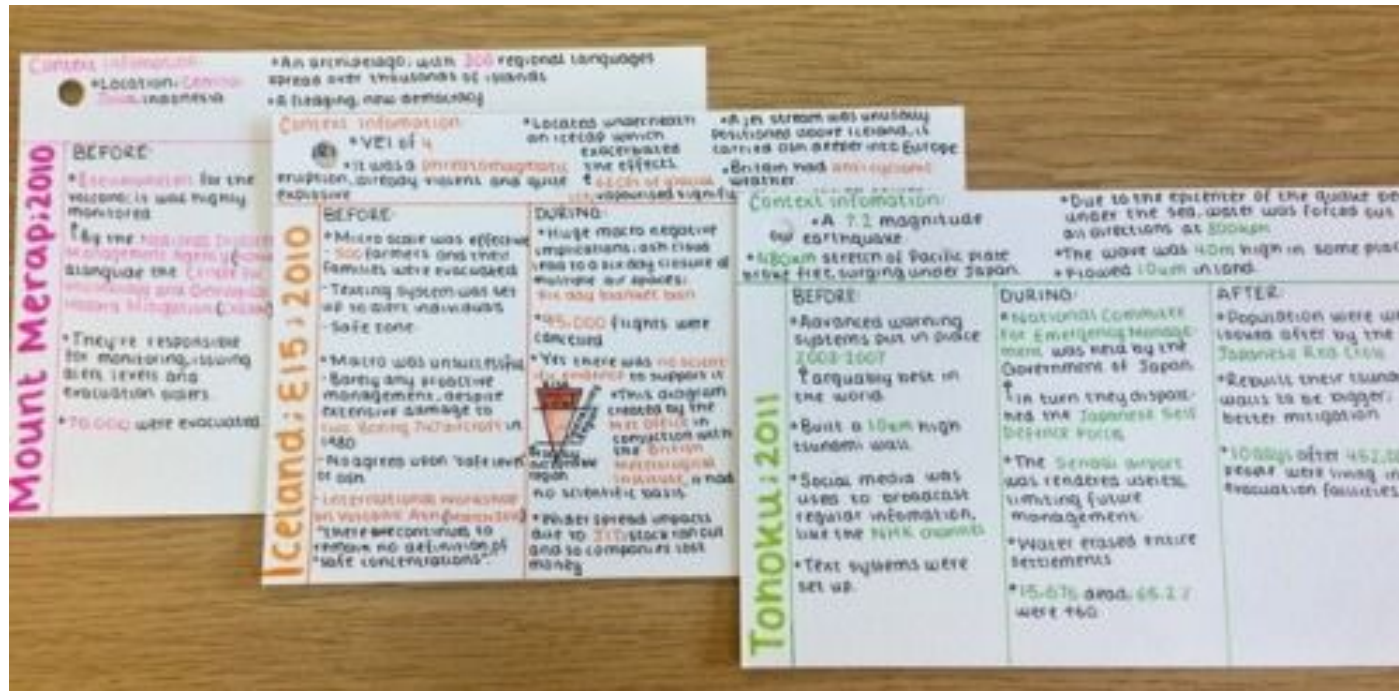 Mount Merapi; 2010
Context infomation:
*Location: Central
Java, Indonesia
*An archipelago; with 300 regional languages
spread over thousands of islands
*A fledging, new democracy
BEFORE:
for the
volcano; it was highly
monitored
By the
Management Agency
alongside the Centre for
Volcanology and Geological
Hazard Mitigation
*They're responsible
for monitoring, issuing
alert levels and
evacuation orders.
*70,000 were evacuated
Iceland; E15; 2010
Context infomation:
*VEI of 4
*It was a phreatomagmatic
eruption, already violent and quite
explosive
*Located underneath
an icecap which
exacerbated
the effects
of glacial
vapourised
*A jet stream was unusually
positioned above Iceland, it
carried ash deeper into Europe
*Britain had anti-cyclonic
weather
BEFORE:
*Micro scale was effective
500 farmers and their
families were evacuated
-Texting system was set
up to alert individuals
-Safe zone
*Macro was unsuccessful
-Barely any proactive
management, despite
extensive damage to
two Boeing 747 aircraft in
1980
-No agreed upon 'safe level'
of ash
-International Workshop
on Volcanic Ash
"there are continues to
remain no definition of
'safe concentrations'"
DURING:
*Huge macro negative
implications; ash cloud
lead to a six day closure of
multiple air spaces;
six day blanket ban
*95,000 flights were
canceled
*Yet there was no scient-
ific evidence to support it
*This diagram
created by the
Met Office in
with
the British
institute, it had
no scientific basis
*Wider spread impacts
due to JIT; stock ran out
and so companies lost
money
Tohoku; 2011
Context infomation:
*A 7.2 magnitude
earthquake
*480km stretch of Pacific plate
broke free, surging under Japan.
*Due to the epicenter of the quake
under the sea, water was forced out
all directions at 800kph
*The wave was 40m high in some
*Plowed 10km inland.
BEFORE:
*Advanced warning
systems put in place
2003-2007
arguably best in
the world.
*Built a 10km high
tsunami wall.
*Social media was
used to broadcast
regular infomation,
like the NHK channel
*Text systems were
set up.
DURING:
*National Committe
for Emergency Manage-
ment was held by the
Government of Japan
in turn they dispatc-
hed the Japanese Self
Defence Force.
*The Sendai airport
was rendered useless,
limiting future
management.
*Water erased entire
settlements
*15,676 dead; 65.2%
were +60
AFTER:
*Population were
issued after by the
Japanese Red Cross
*Rebuilt their
walls to be bigger;
better mitigation
*10 days after
people were living in
evacuation facilities